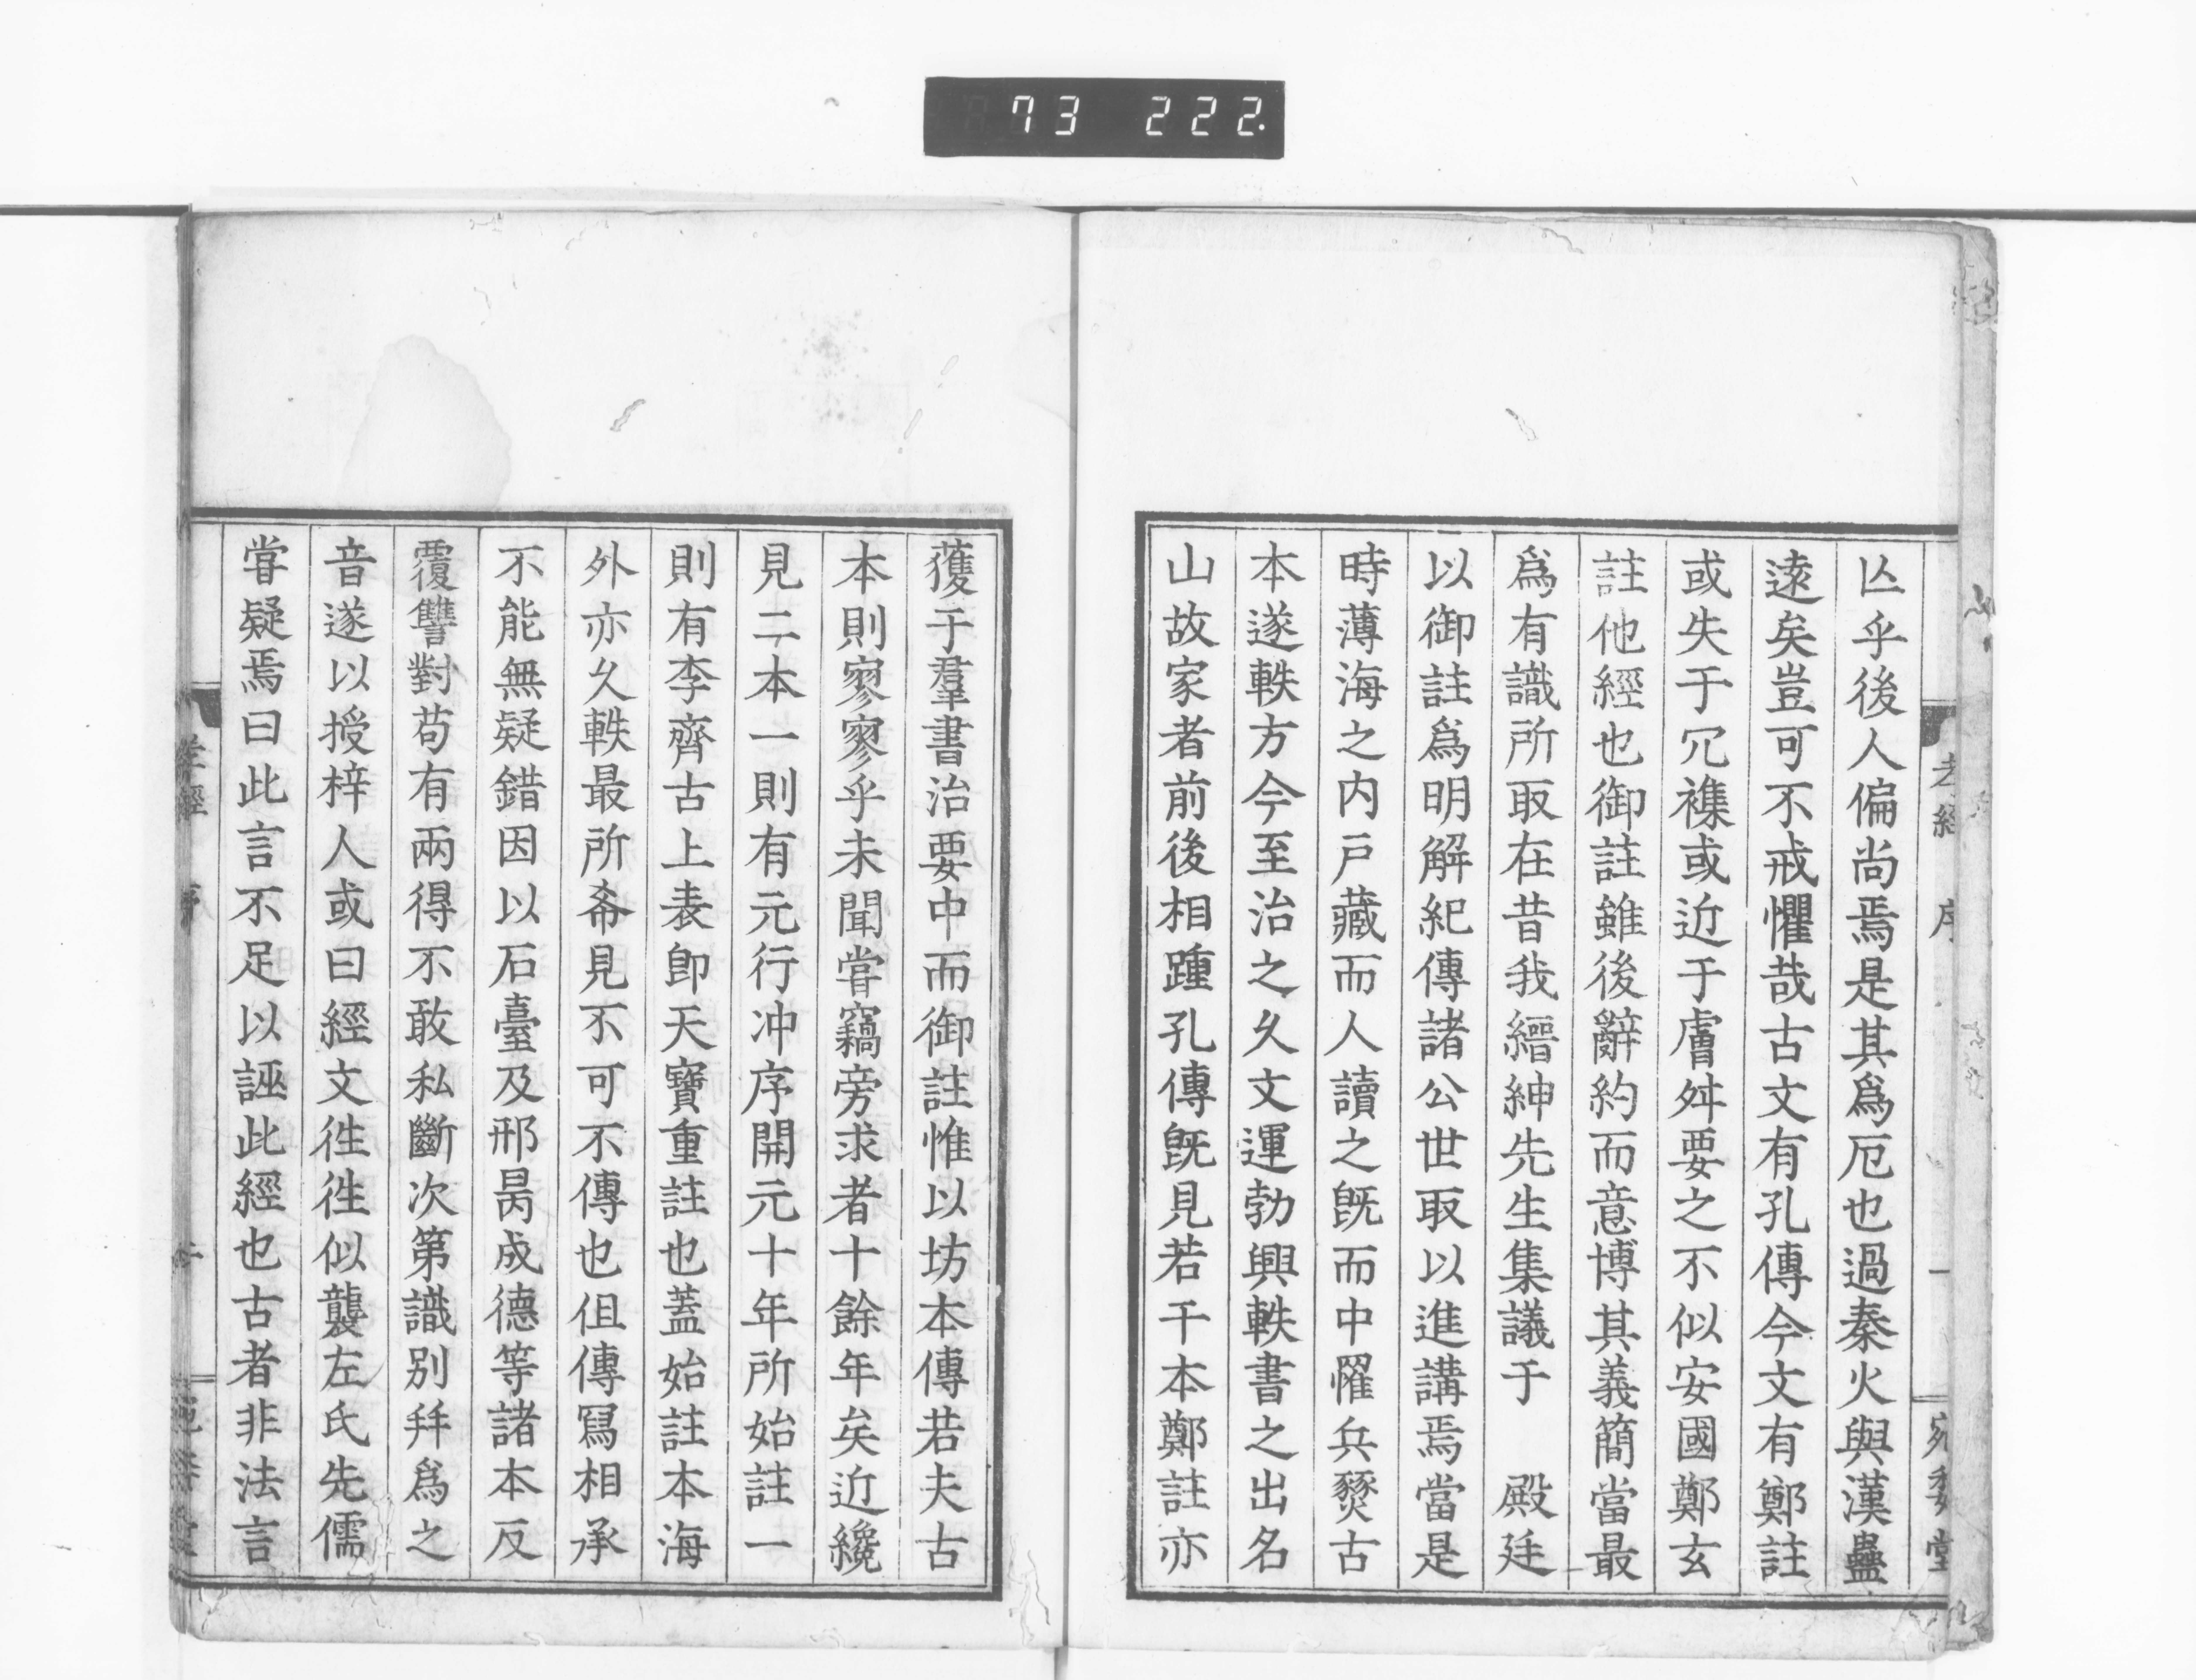 73 222.
亾乎後人偏尚焉是其爲厄也過秦火與漢蠱
遠矣豈可不戒懼哉古文有孔傳今文有鄭註
或失于冗襍或近于膚舛要之不似安國鄭玄
註他經也御註雖後辭約而意博其義簡當最
爲有識所取在昔我縉紳先生集議于　殿廷
以御註爲明解紀傳諸公世取以進講焉當是
時薄海之内戸藏而人讀之旣而中罹兵燹古
本遂軼方今至治之久文運勃興軼書之出名
山故家者前後相踵孔傳旣見若干本鄭註亦
孝經　序　一
獲于羣書治要中而御註惟以坊本傳若夫古
本則寥寥乎未聞甞竊旁求者十餘年矣近纔
見二本一則有元行冲序開元十年所始註一
則有李齊古上表卽天寶重註也蓋始註本海
外亦久軼最所希見不可不傳也但傳寫相承
不能無疑錯因以石臺及邢昺成德等諸本反
覆讐對苟有兩得不敢私斷次第識别拜爲之
音遂以授梓人或曰經文徃徃似襲左氏先儒
甞疑焉曰此言不足以誣此經也古者非法言
孝經　序